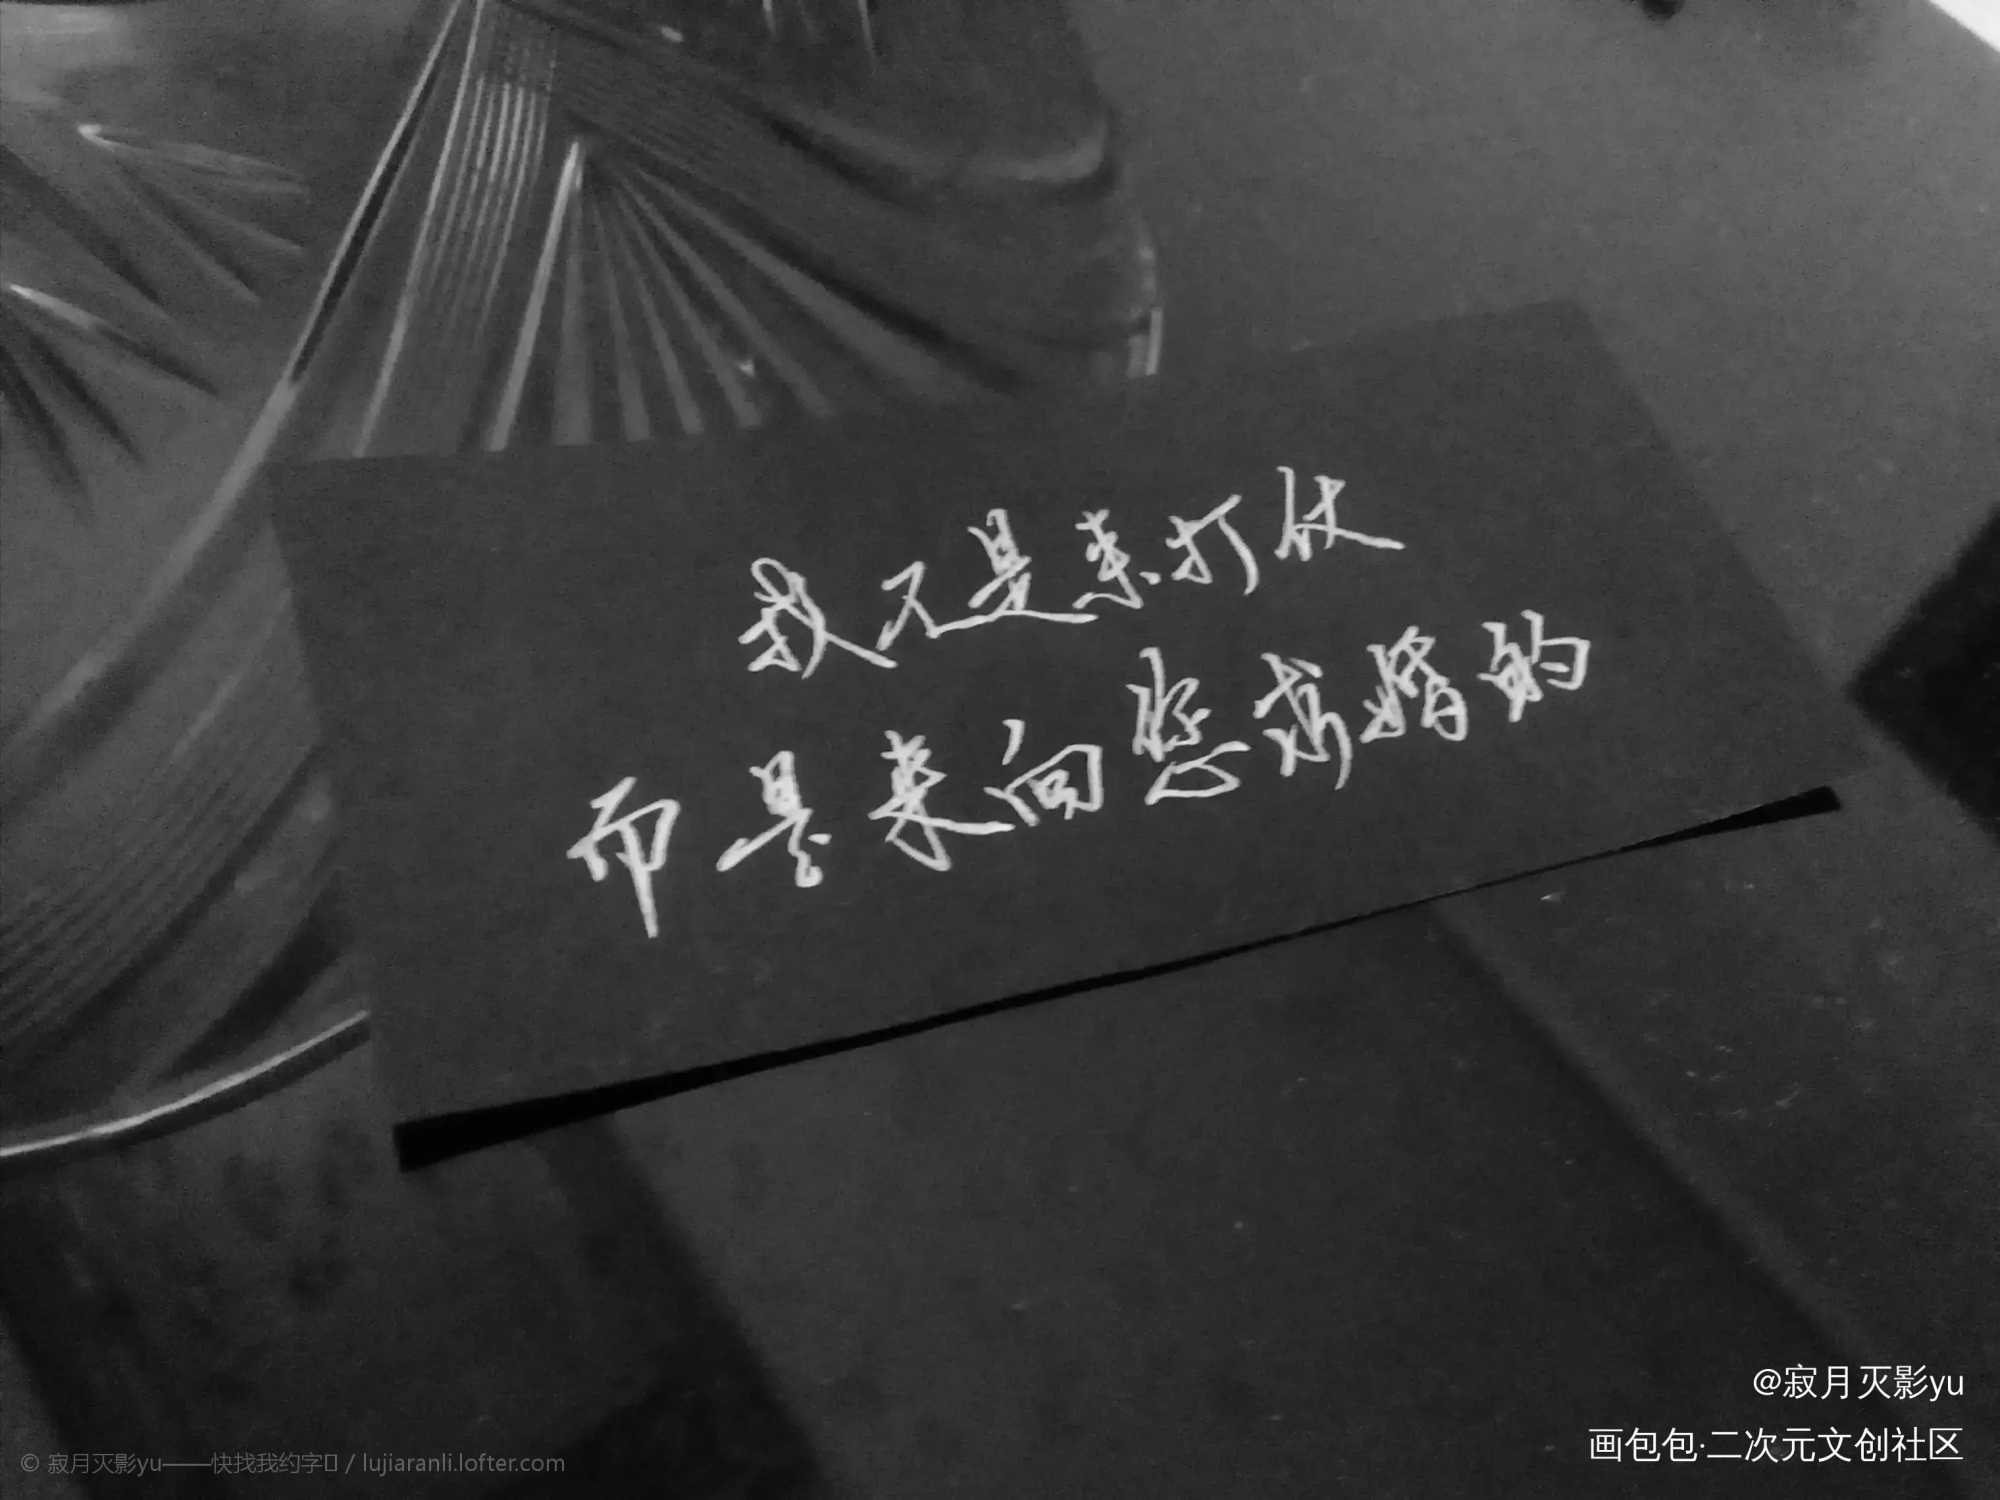 我不是来打仗
而是来向您求婚的
@寂月灭影yu
画包包·二次元文创社区
© 寂月灭影yu——快找我约字 / lujiaranli.lofter.com